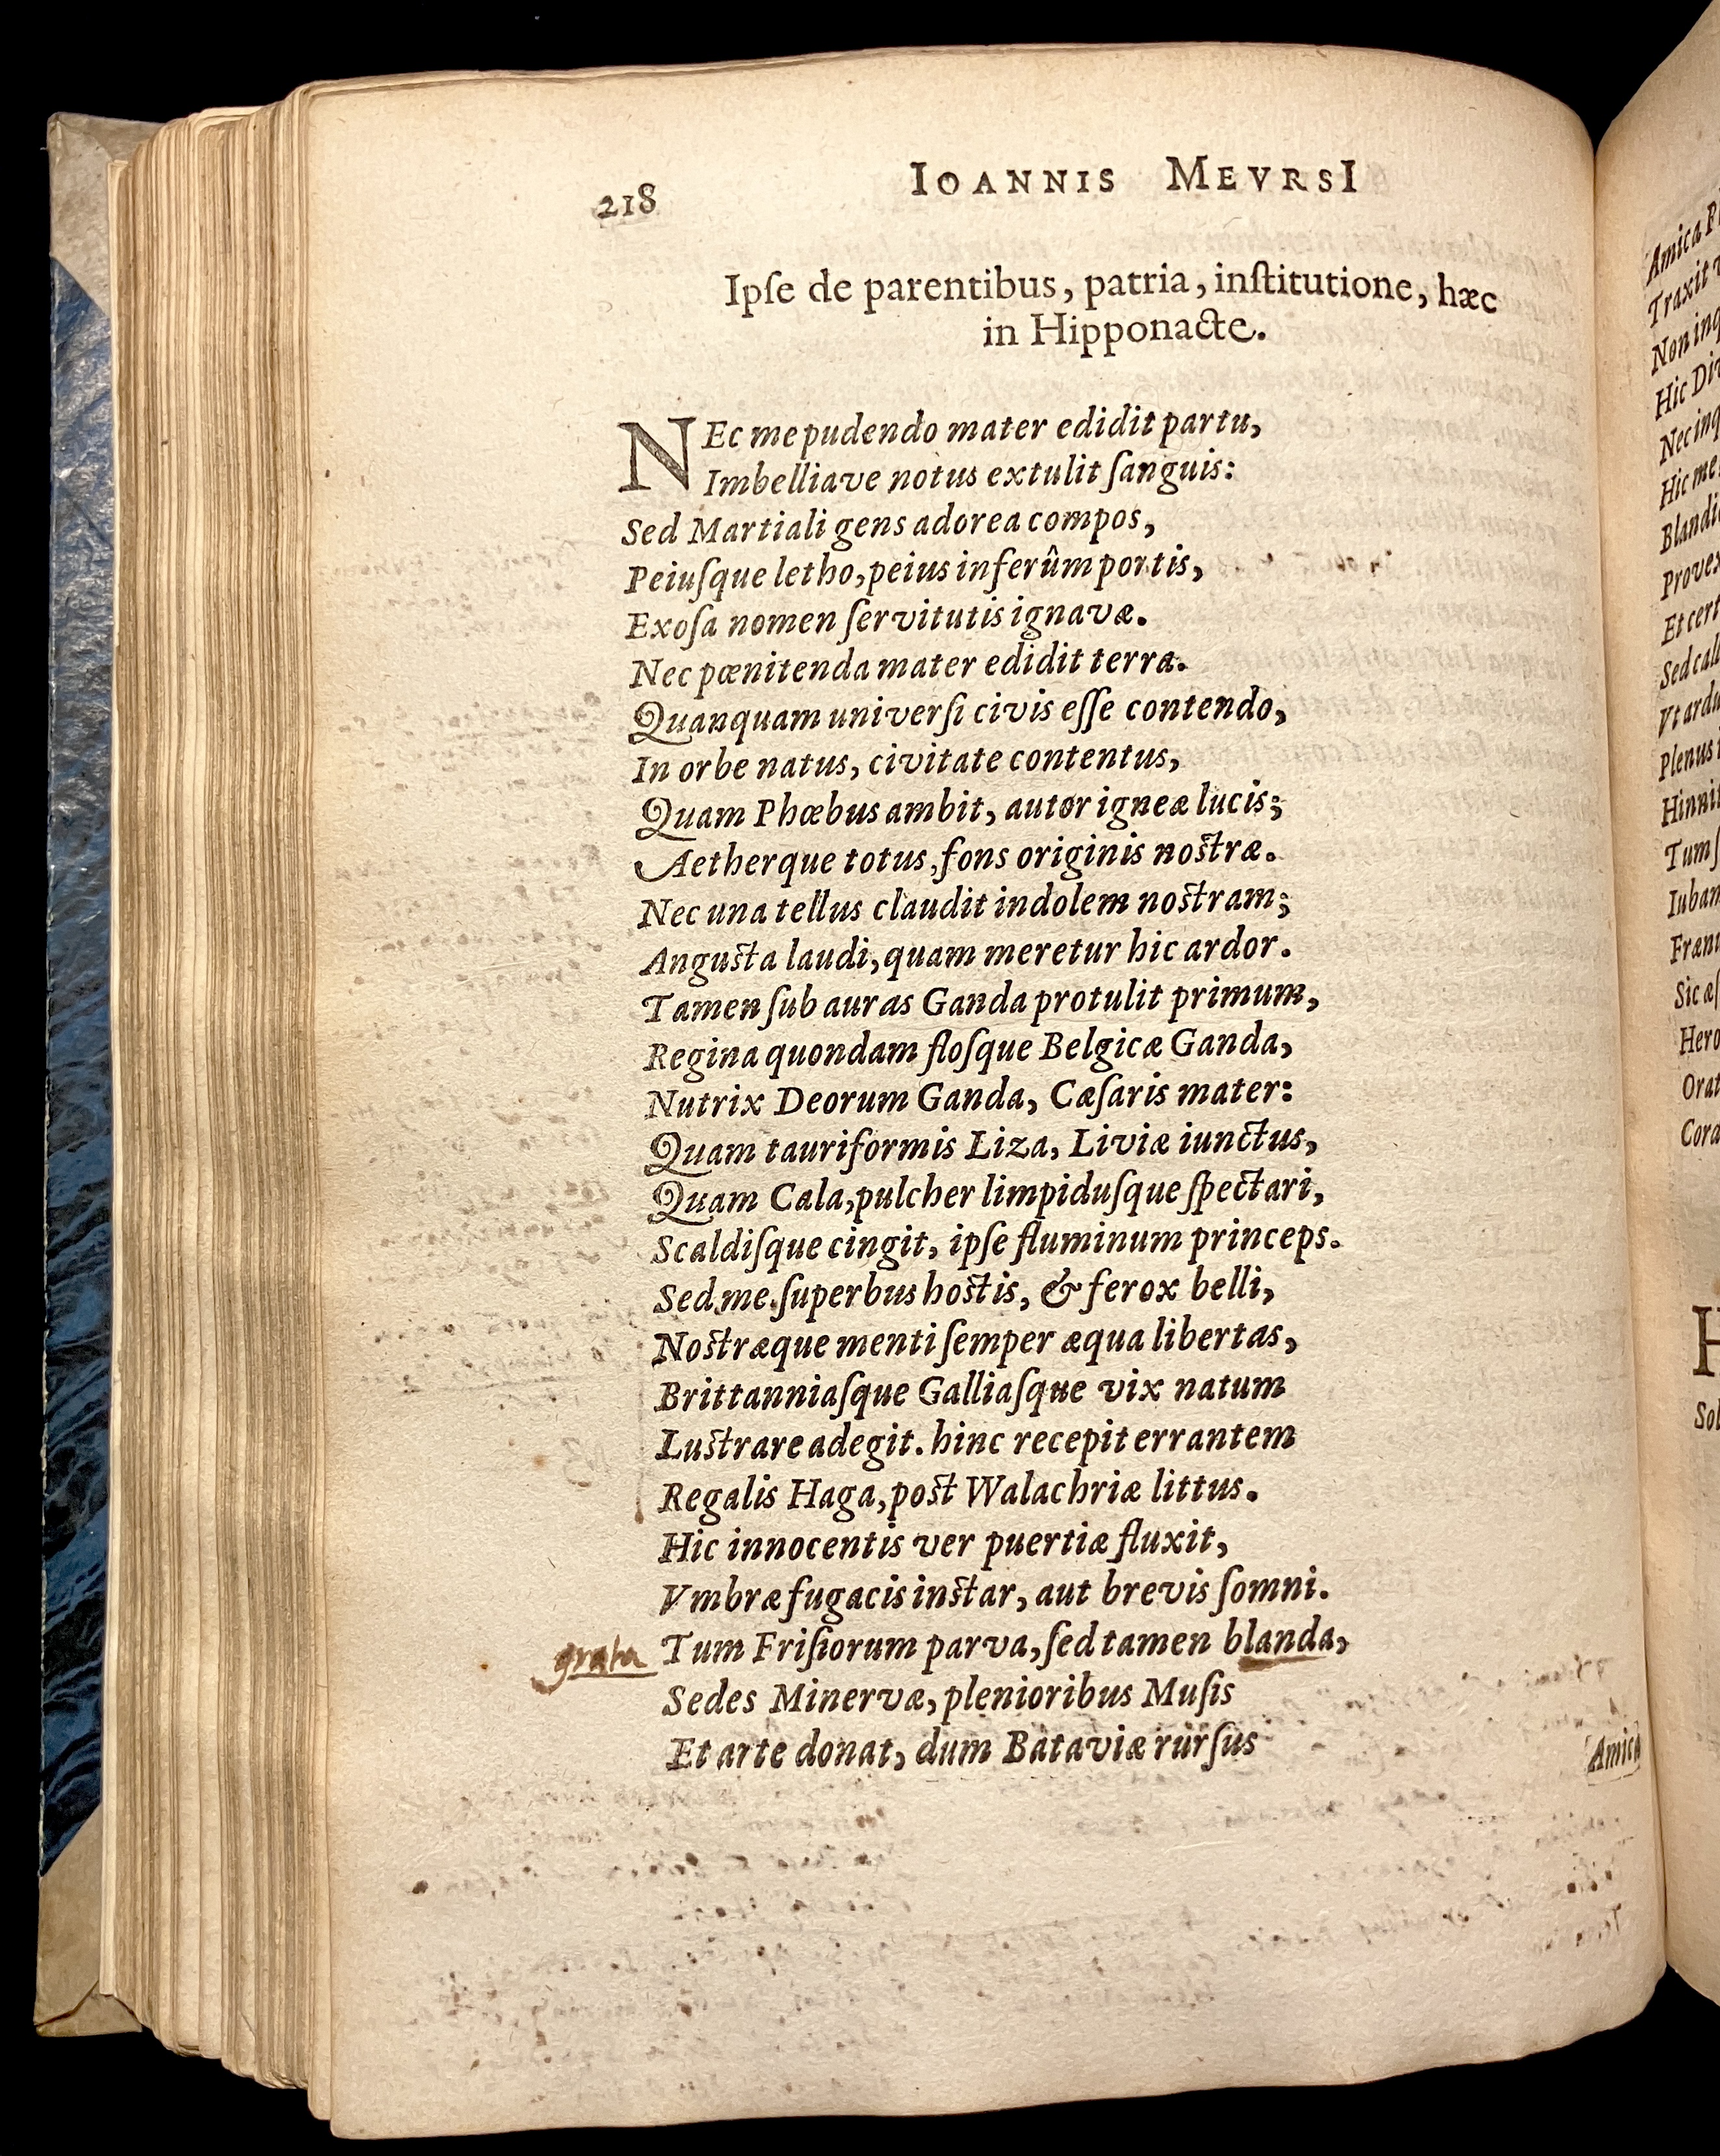 218
IOANNIS MEVRSI
Ipſe de parentibus, patria, inſtitutione, hæc
in Hipponacte.
NEc me pudendo mater edidit partu,
Imbelliave notus extulit ſanguis:
Sed Martiali gens adorea compos,
Peiuſque letho, peius inferûm portis,
Exoſa nomen ſervitutis ignavæ.
Nec pœnitenda mater edidit terra.
Quanquam univerſi civis eſſe contendo,
In orbe natus, civitate contentus,
Quam Phœbus ambit, autor igneæ lucis;
Aetherque totus, fons originis noſtræ.
Nec una tellus claudit indolem noſtram;
Anguſta laudi, quam meretur hic ardor.
Tamen ſub auras Ganda protulit primum,
Regina quondam floſque Belgicæ Ganda,
Nutrix Deorum Ganda, Cæſaris mater:
Quam tauriformis Liza, Liviæ iunctus,
Quam Cala, pulcher limpiduſque ſpectari,
Scaldiſque cingit, ipſe fluminum princeps.
Sed me ſuperbus hoſtis, & ferox belli,
Noſtræque menti ſemper æqua libertas,
Brittanniaſque Galliaſque vix natum
Luſtrare adegit. hinc recepit errantem
Regalis Haga, poſt Walachriæ littus.
Hic innocentis ver puertiæ fluxit,
Vmbræ fugacis inſtar, aut brevis ſomni.
grata Tum Friſiorum parva, ſed tamen blanda,
Sedes Minervæ, plenioribus Muſis
Et arte donat, dum Bataviæ rurſus
Amica
Amica
Traxit
Non inq
Hic Di
Nec inq
Hic me
Blandi
Provex
Et cert
Sed cal
Vt ardu
Plenus
Hinni
Tum
Iuban
Fræn
Sic æ
Hero
Orat
Cora
H
Sol